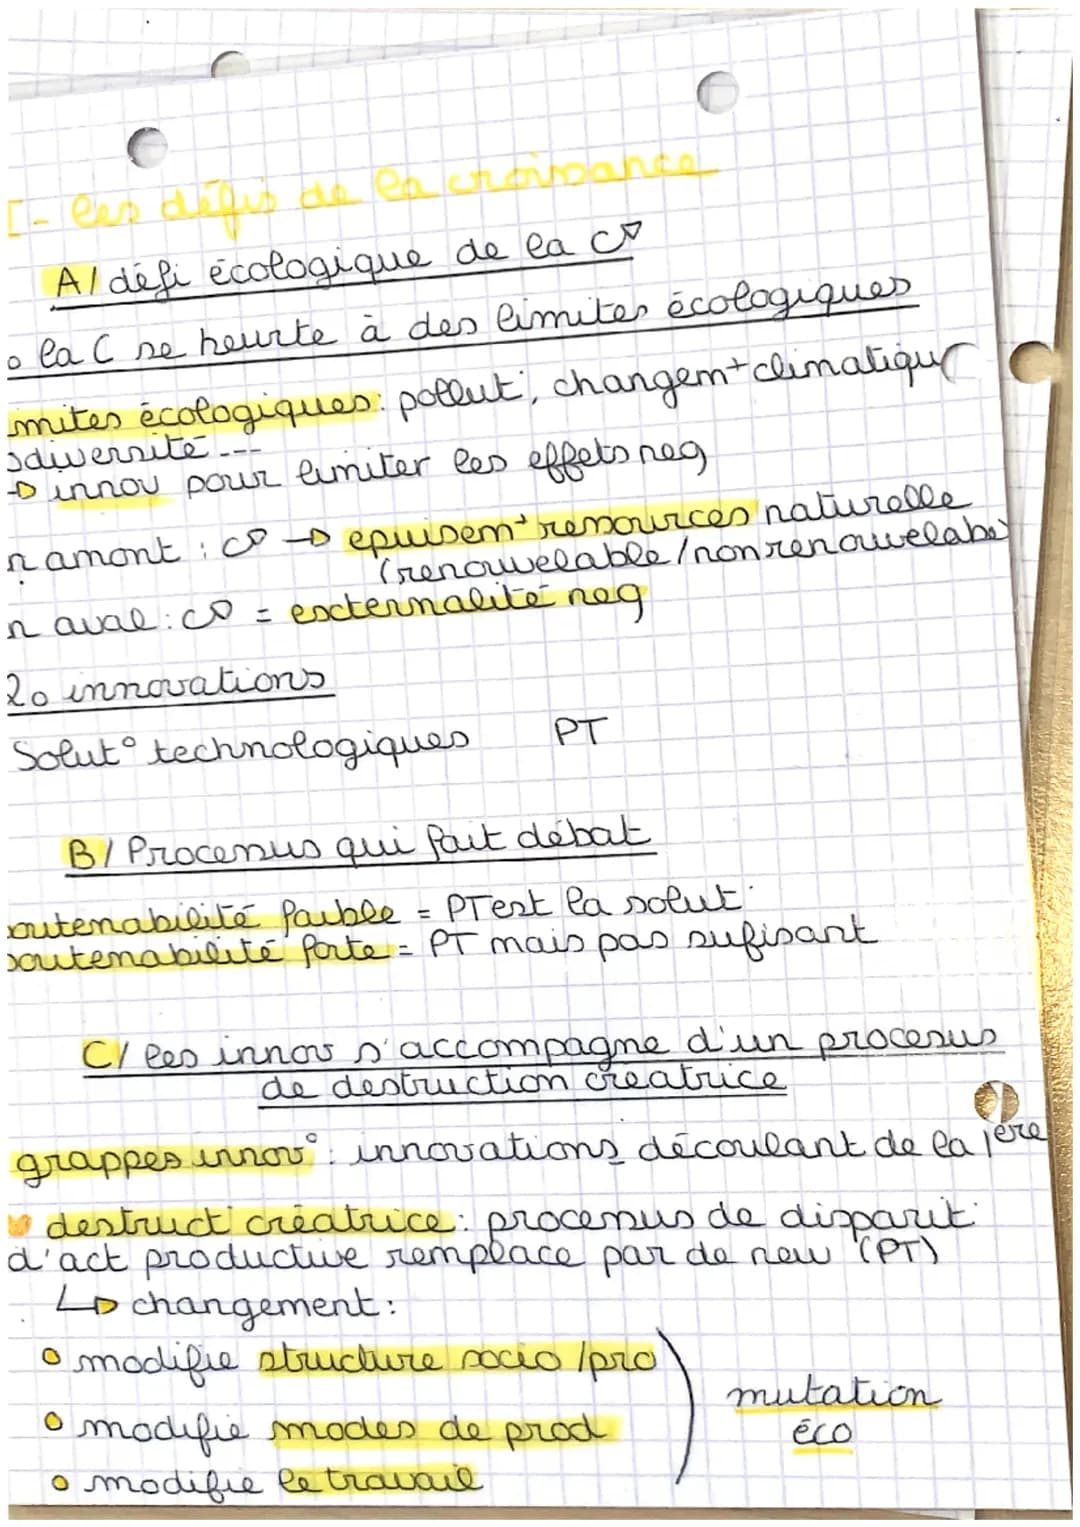 I - les défis de la croissance
A/ défi écologique de la c
la C se heurte à des limites écologiques
mites écologiques: pollut°, changem+ climatique
odiversité ---
→ innov pour limiter les effets neg
n amont : c → epuisem+ ressources naturelle
(renouvelable / non renouvelable)
n aval : c = externalité neg
2. innovations
Solut° technologiques PT
B/ Procenus qui fait débat
outenabilité faible = PT est la solut°
soutenabilité forte = PT mais pas sufisant
C/ les innov s'accompagne d'un procesus
de destruction créatrice
grappes innov° : innovations découlant de la 1ère
destruct° créatrice : processus de disparit°
d'act productive remplace par de new (PT)
↳ changement :
modifie structure socio /pro
modifie modes de prod
modifie le travail
mutation
éco